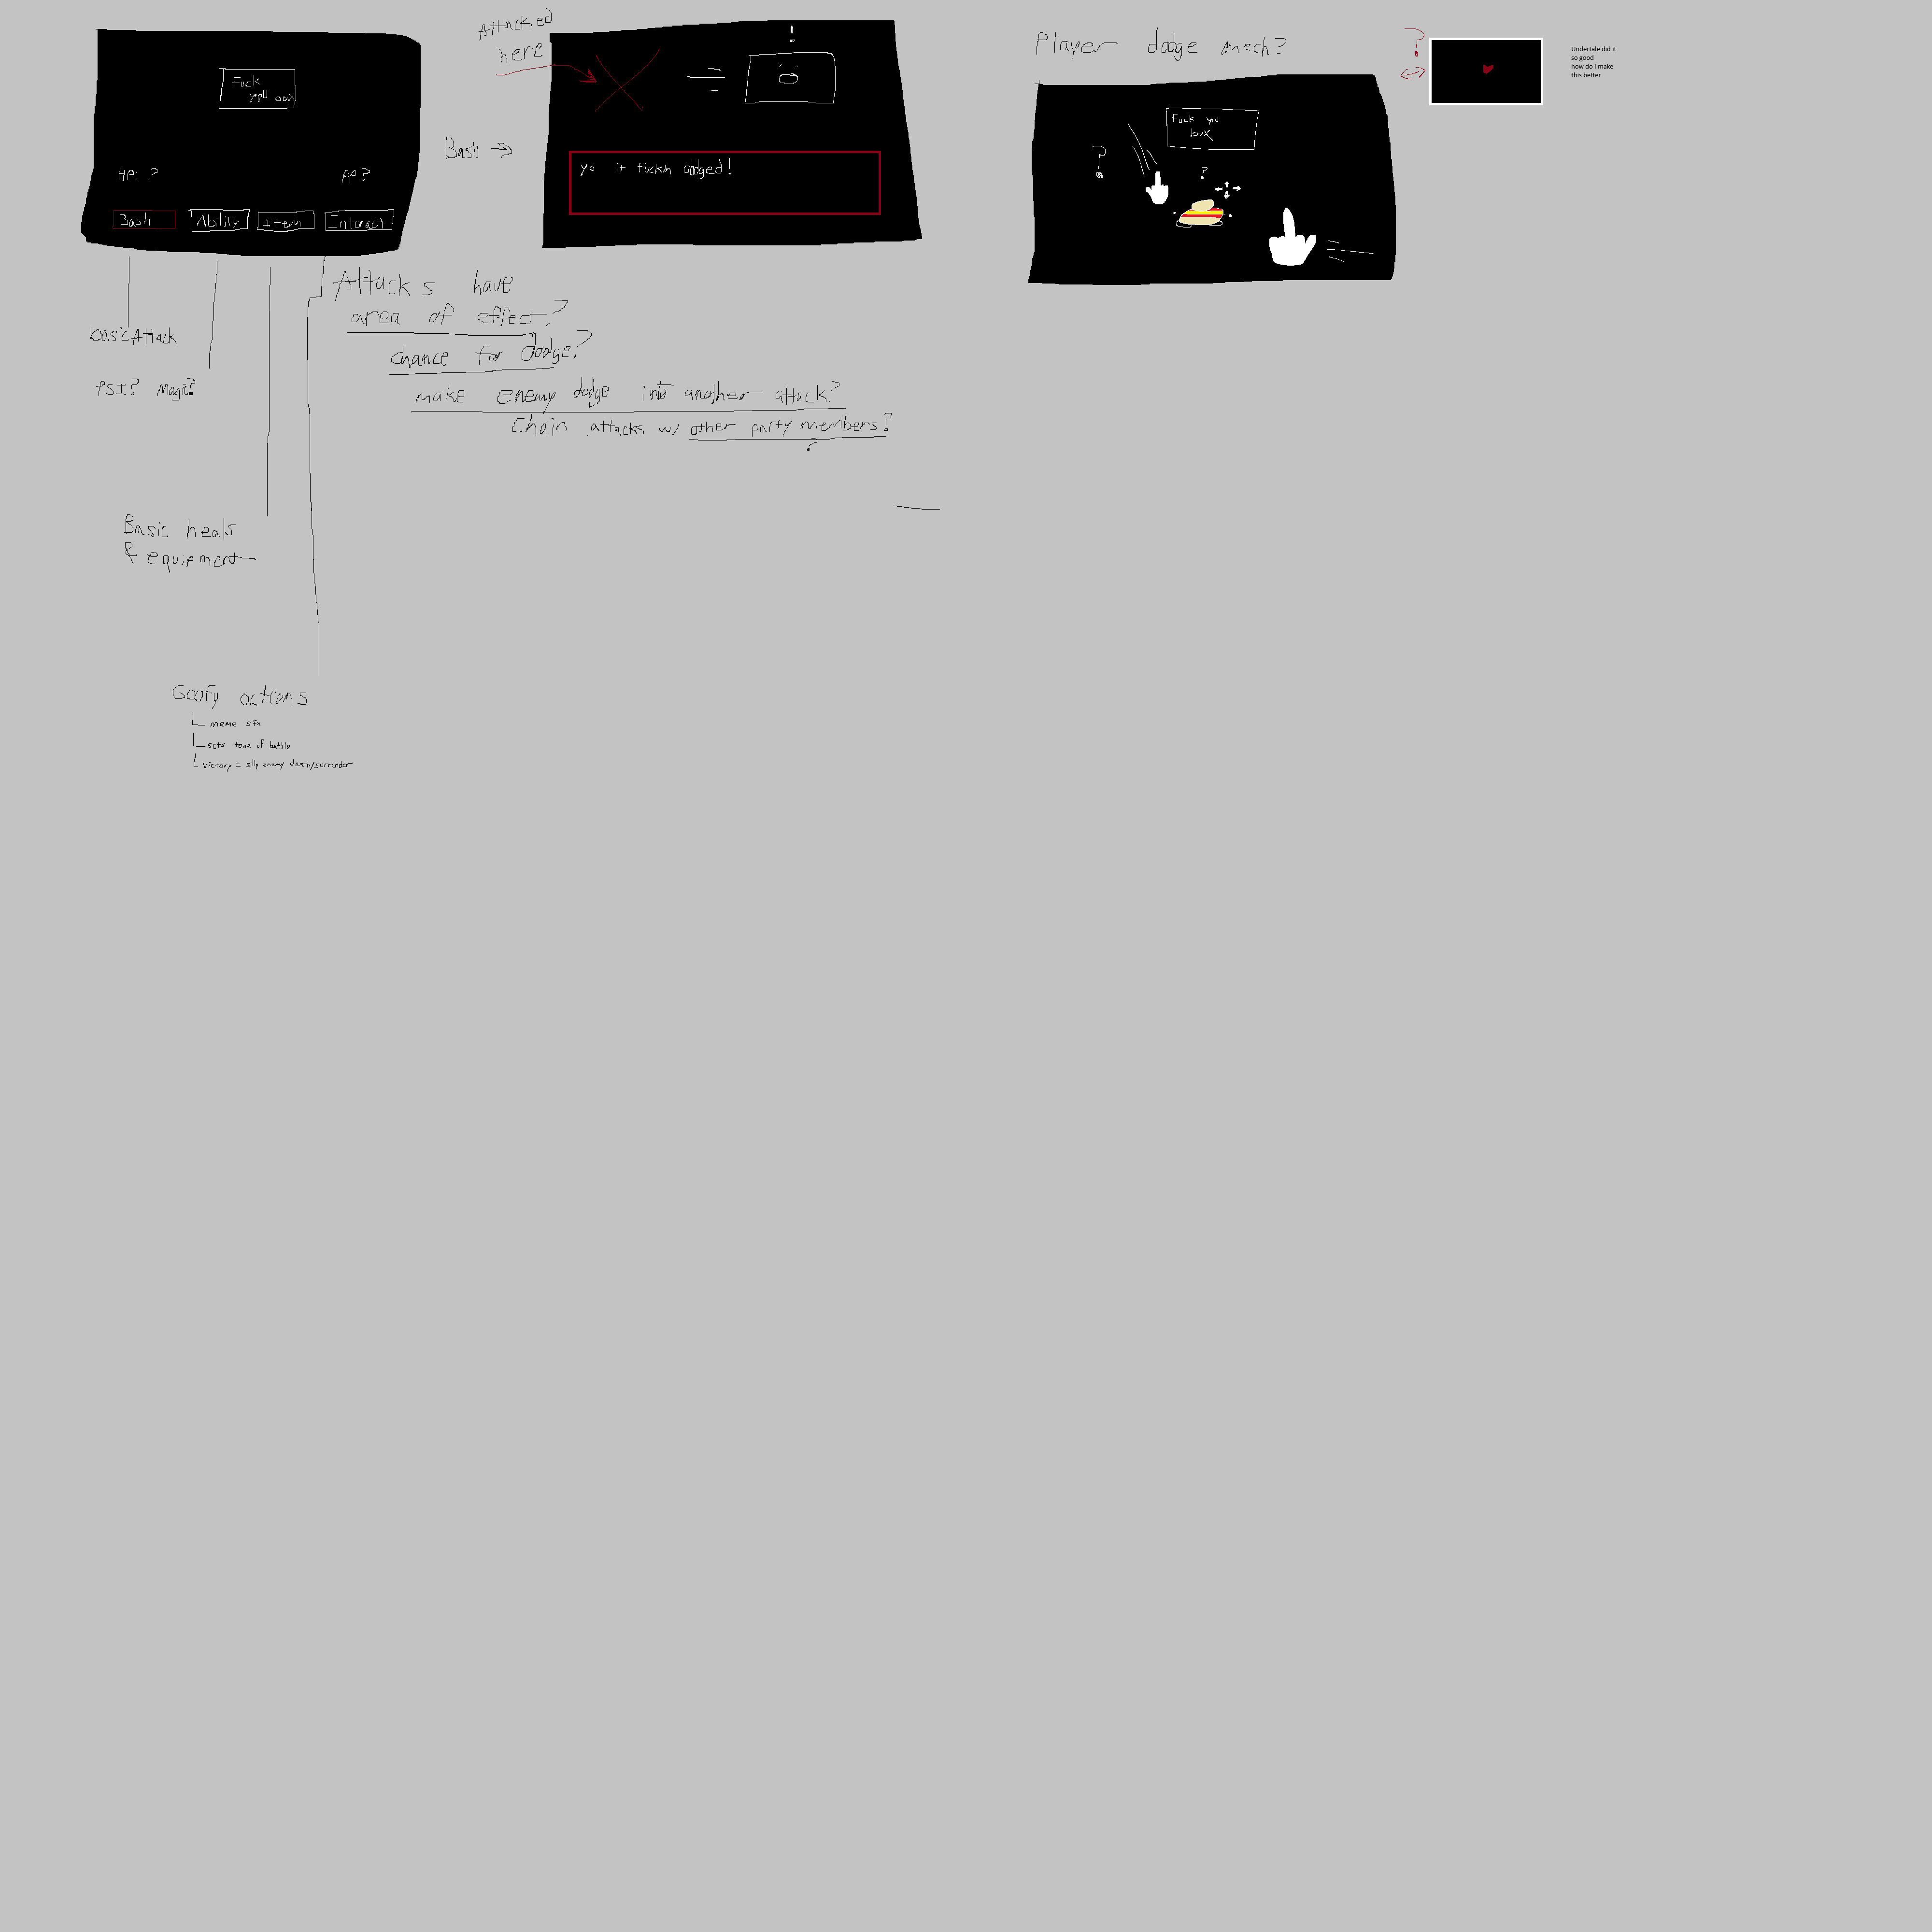 Fuck
you box
HP: ?
PP?
Bash
Ability
Item
Interact
basic Attack
PSI? Magic?
Basic heals
& equipment
Goofy actions
meme sfx
sets tone of battle
victory = silly enemy death/surrender
Attacked
here
Bash →
!
yo it fuckin dodged!
Attacks have
area of effect?
chance for dodge?
make enemy dodge into another attack?
Chain attacks w/ other party members?
?
Player dodge mech?
Fuck you
box
?
?
?
Undertale did it
so good
how do I make
this better